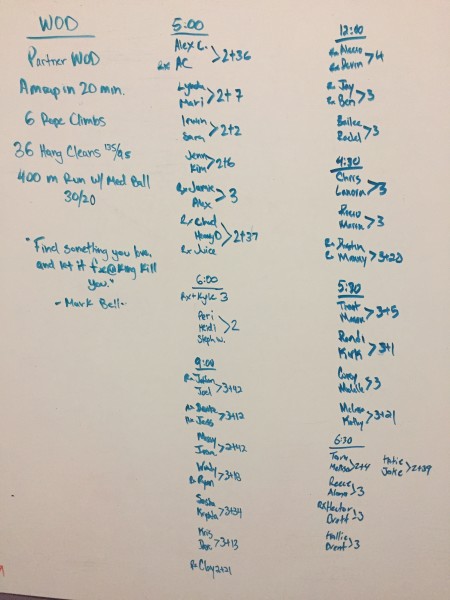 WOD
Partner WOD
Amrap in 20 min.
6 Rope Climbs
36 Hang Cleans 135/95
400 m Run w/ Med Ball
30/20
"Find something you love,
and let it f*@king kill
you."
- Mark Bell -
5:00
Alex C.
Rx AC >2+36
Lynda
Mari >2+7
Sara >2+2
Jenn
Kim >2+6
Rx Jamie
Alex >3
Rx Chad
Henry D >2+37
Rx Juice
6:00
Rx+Kyle 3
Peri
Heidi >2
Steph W.
9:00
Joel >3+42
Rx Jess >3+12
>2+42
Wendy
Rx Ryan >3+18
Sasha
Krysta >3+34
Kris
>3+13
Rx Clay 2+21
12:00
Rx Devin >4
Rx Jay
Rx Ben >3
Bailee
>3
4:30
Chris
Landra >3
>3
Rx Dustin
Rx Manny >3+20
5:30
Mason >3+5
Randi
Kirk >3+1
Corey
Michelle >3
Kathy >3+21
6:30
>2+4
Reece
>3
Rx Hector
Brett >3
Hallie
Brent >3
Katie
Jake >2+39